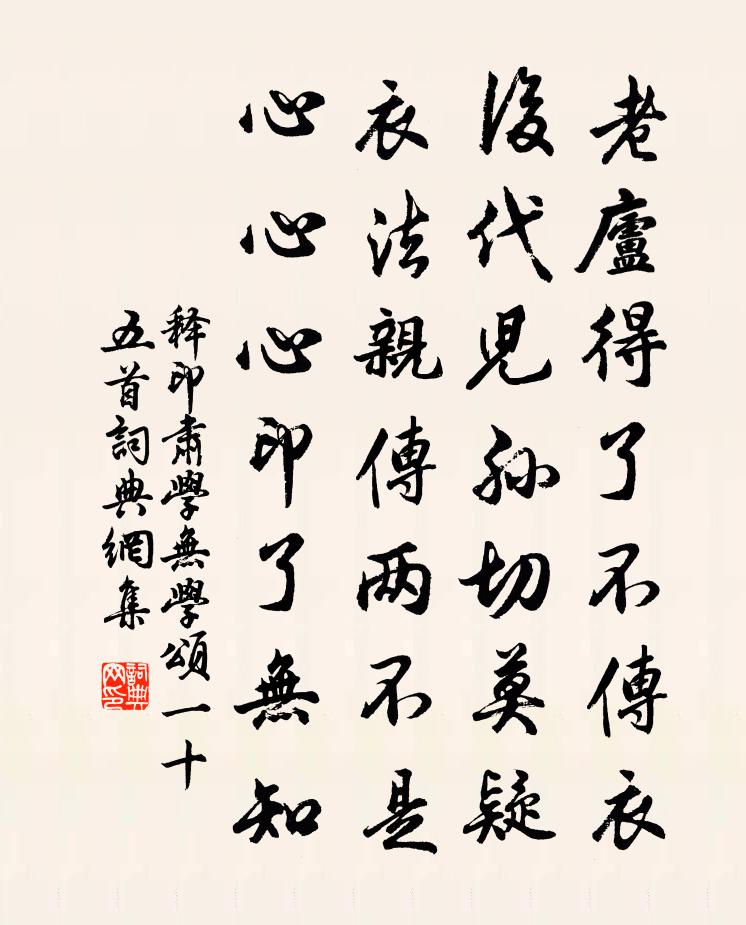 老廬得了不傳衣
後代児孫切莫疑
衣法親傳两不是
心心心印了無知
释印肃學無學頌一十
五首詞典網集
詞典
网印